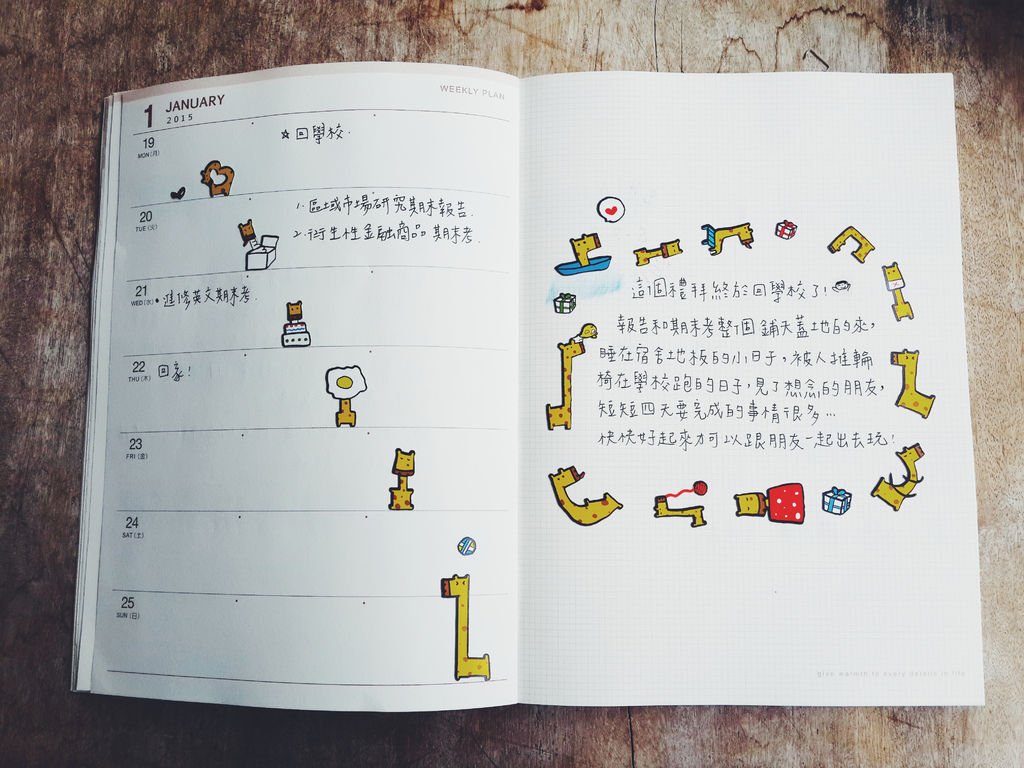 WEEKLY PLAN
1 JANUARY
2015
19
MON (月)
☆回學校.
20
TUE (火)
1. 區域市場研究期末報告.
2. 衍生性金融商品期末考.
21
WED (水)
• 進修英文期末考.
22
THU (木)
回家!
23
FRI (金)
24
SAT (土)
25
SUN (日)
這個禮拜終於回學校了!
報告和期末考整個鋪天蓋地的來,
睡在宿舍地板的小日子,被人推輪
椅在學校跑的日子,見了想念的朋友,
短短四天要完成的事情很多…
快快好起來才可以跟朋友一起出去玩!
give warmth to every details in life